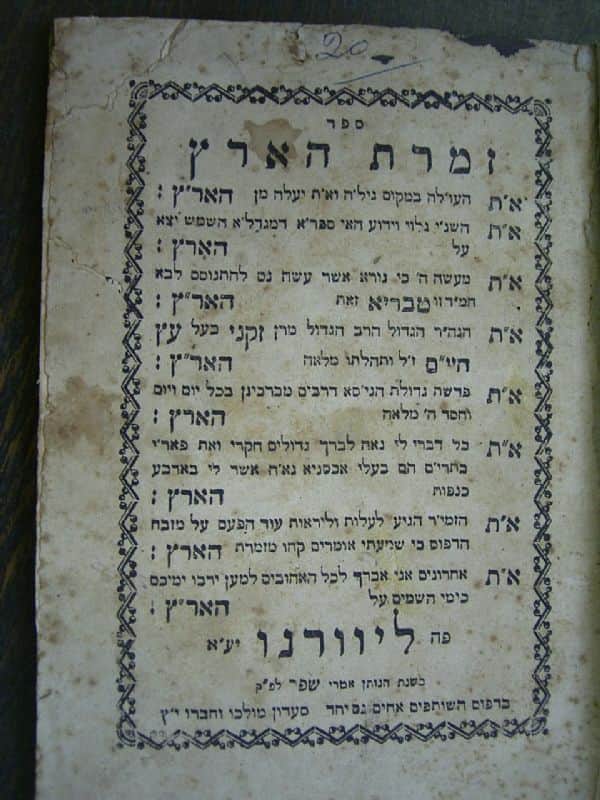 20
ספר
זמרת הארץ
א״ת העולה במקום גיל״ה וא״ת יעלה מן הארץ :
א״ת השנ״י גלוי וידוע האי ספרא דמגדל״א השמש יצא
על הארץ :
א״ת מעשה ה׳ כי נורא אשר עשה נם להתנוסס לבא
חמ״ד זו טבריא זאת הארץ :
א״ת הנה״ר הגדול הרב הגדול מרן זקני בעל עץ
חיי״ם ז״ל ותהלתו מלאה הארץ :
א״ת פרשה גדולת הני״סא דרבים מברכינן בכל יום ויום
וחסד ה׳ מלאה הארץ :
א״ת כל דברי לי נאה לברך גדולים חקרי ואת פאר״י
בתרי״ם הם בעלי אכסניא נא״ה אשר לי בארבע
כנפות הארץ :
א״ת הזמי״ר הגיע לעלות וליראות עוד הפעם על מזבח
הדפוס כי שמעתי אומרים קחו מזמרת הארץ :
א״ת אחרונים אני אברך לכל האהובים למען ירבו ימיכם
כימי השמים על הארץ :
פה ליוורנו יע״א
בשנת הנותן אמרי שפר לפ״ק
בדפוס השותפים אחים גם יחד סעדון מולכו וחברו י״ץ